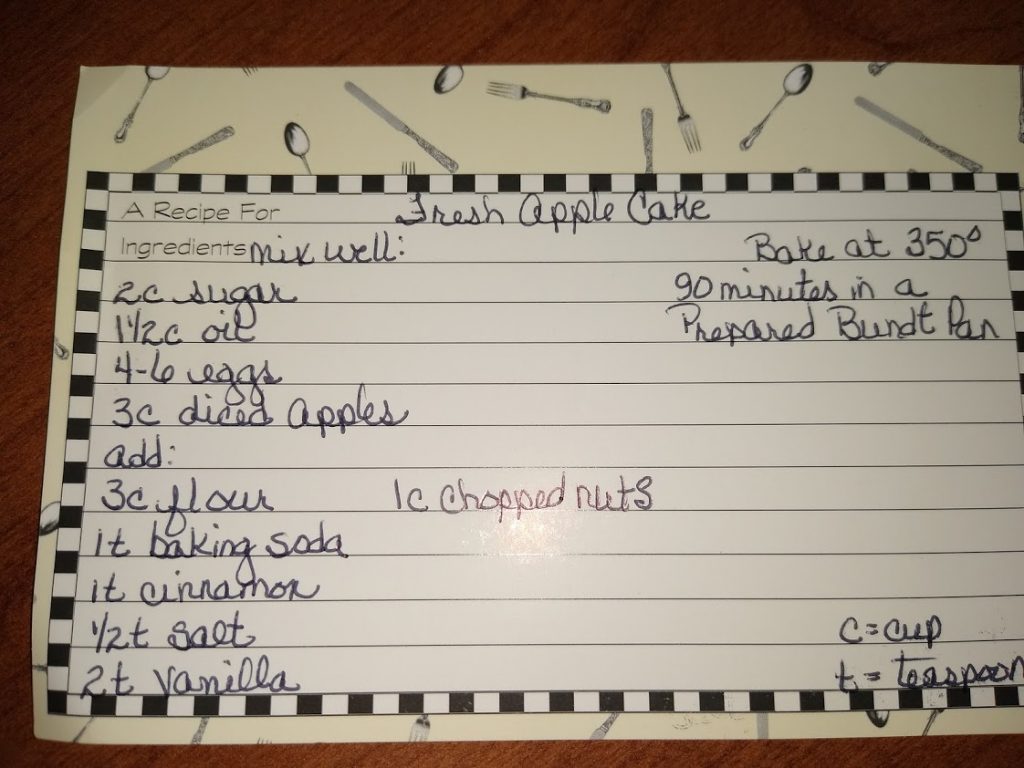 A Recipe For Fresh Apple Cake
Ingredients mix well: Bake at 350°
2c sugar 90 minutes in a
1 1/2c oil Prepared Bundt Pan
4-6 eggs
3c diced apples
add:
3c flour 1c chopped nuts
1t baking soda
1t cinnamon
1/2t salt c=cup
2t vanilla t = teaspoon